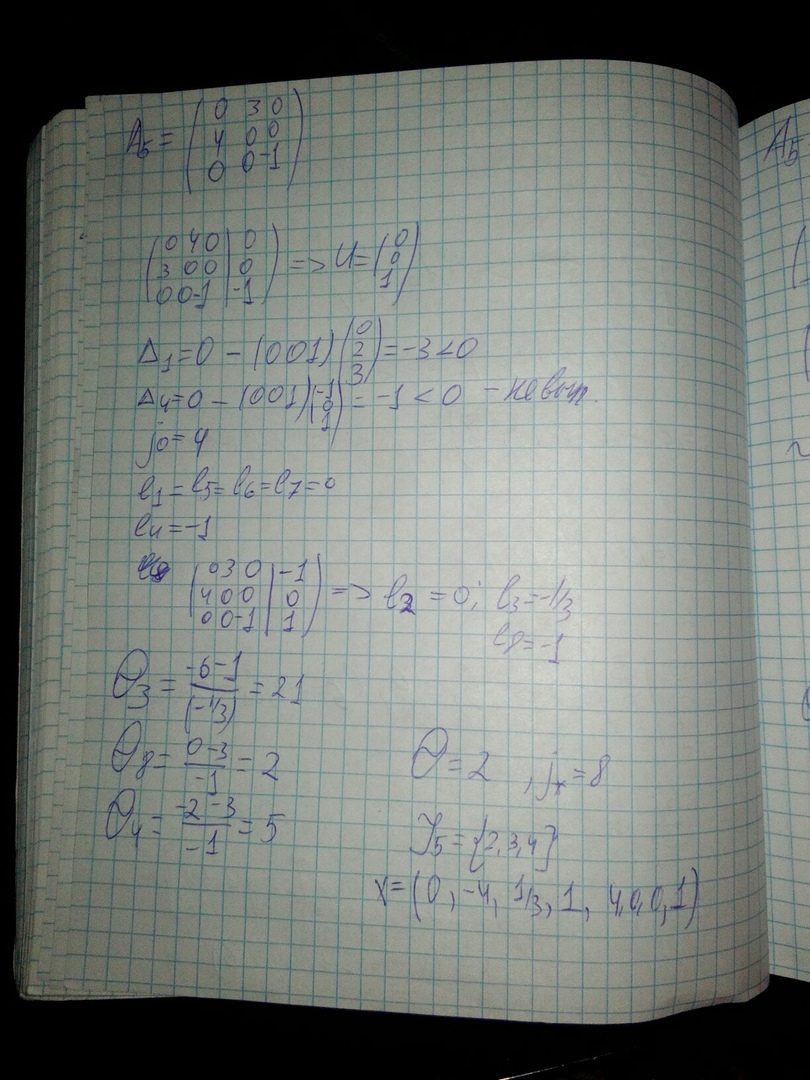 A_Б = (0 3 0
4 0 0
0 0 -1)
(0 4 0 | 0
3 0 0 | 0
0 0 -1 | -1) => U = (0
0
1)
Δ₁ = 0 - (0 0 1)(0
2
3) = -3 < 0
Δ₄ = 0 - (0 0 1)(-1
0
1) = -1 < 0 - невып.
j₀ = 4
l₁ = l₅ = l₆ = l₇ = 0
l₄ = -1
(0 3 0 | -1
4 0 0 | 0
0 0 -1 | 1) => l₂ = 0; l₃ = -1/3
l₈ = -1
Θ₃ = (-6-1)/(-1/3) = 21
Θ₈ = (0-3)/(-1) = 2
Θ = 2, j* = 8
Θ₄ = (-2-3)/(-1) = 5
J_Б = {2,3,4}
x = (0, -4, 1/3, 1, 4,0,0,1)
A_Б